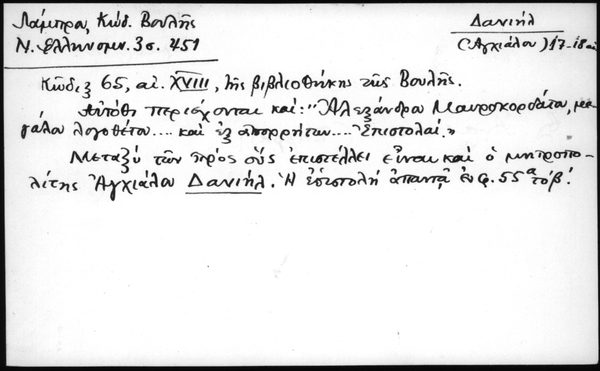 Λάμπρου, Κώδ. Βουλῆς
Ν. Ἑλληνομν. 3 σ. 451
Δανιήλ
(Ἀγχιάλου) 17-18 αἰ
Κῶδιξ 65, αἰ. XVIII, τῆς βιβλιοθήκης τῆς Βουλῆς.
Αὐτόθι περιέχονται καί: "Ἀλεξάνδρου Μαυροκορδάτου, με-
γάλου λογοθέτου.... καὶ ἐξ ἀπορρήτων.... Ἐπιστολαί."
Μεταξύ τῶν πρὸς οὓς ἐπιστέλλει εἶναι καὶ ὁ μητροπο-
λίτης Ἀγχιάλου Δανιήλ. Ἡ ἐπιστολή ἀπαντᾷ ἐν φ. 55α τὸ β!